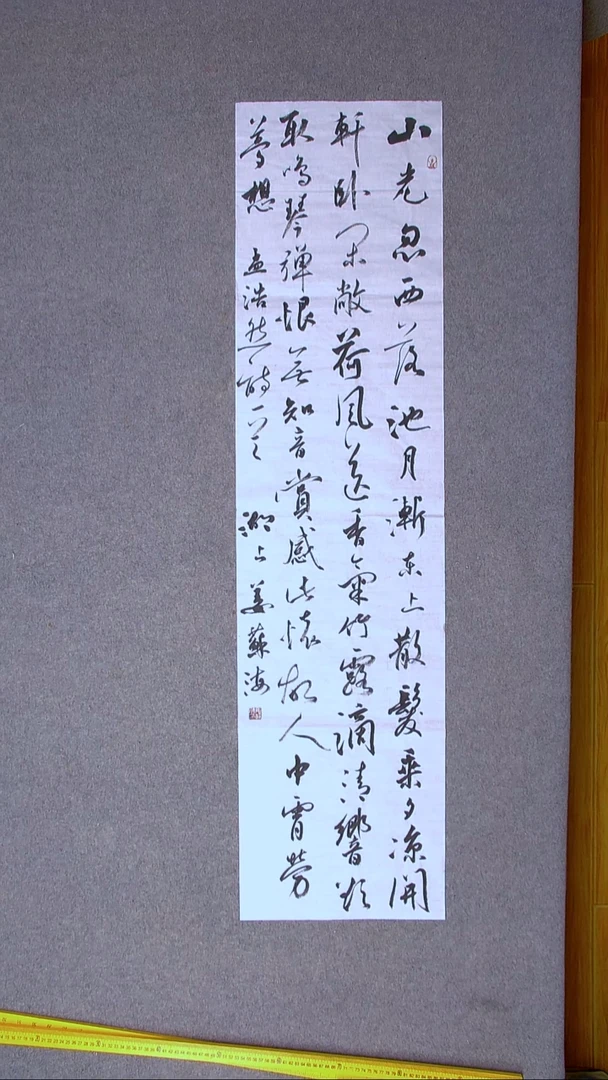 山光忽西落池月漸東上散髮乘夕涼開
軒卧閑敞荷風送香氣竹露滴清響欲
取鳴琴彈恨無知音賞感此懷故人中宵勞
夢想 孟浩然詩 上 姜蘇海